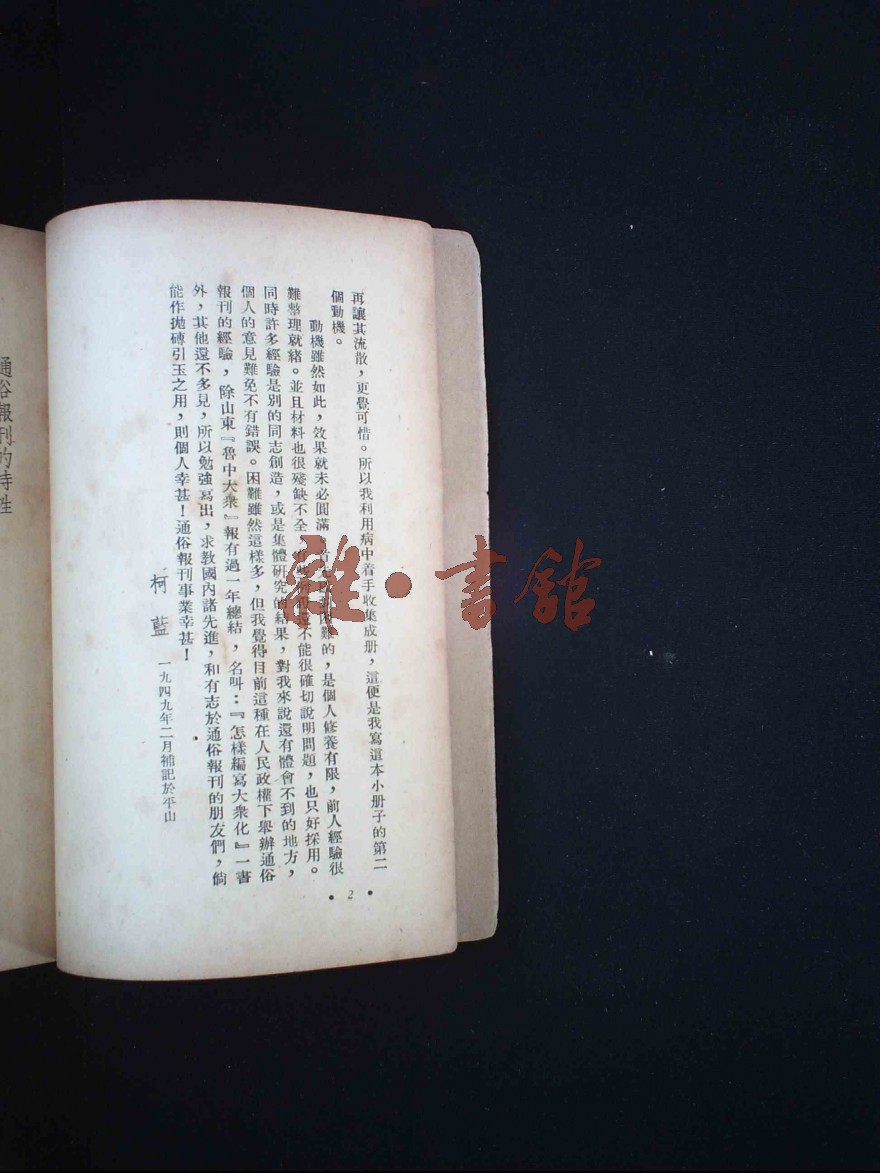 再讓其流散，更覺可惜。所以我利用病中着手收集成册，這便是我寫這本小册子的第二
個動機。
動機雖然如此，效果就未必圓滿，難的，是個人修養有限，前人經驗很
難整理就緒。並且材料也很殘缺不全，不能很確切說明問題，也只好採用。
同時許多經驗是别的同志創造，或是集體研究的結果，對我來說還有體會不到的地方，
個人的意見難免不有錯誤。困難雖然這樣多，但我覺得目前這種在人民政權下舉辦通俗
報刊的經驗，除山東『魯中大衆』報有過一年總結，名叫：『怎樣編寫大衆化』一書
外，其他還不多見，所以勉強寫出，求教國內諸先進，和有志於通俗報刊的朋友們，倘
能作拋磚引玉之用，則個人幸甚！通俗報刊事業幸甚！
柯藍 一九四九年二月補記於平山
• 2 •
通俗報刊的特性
雜·書館